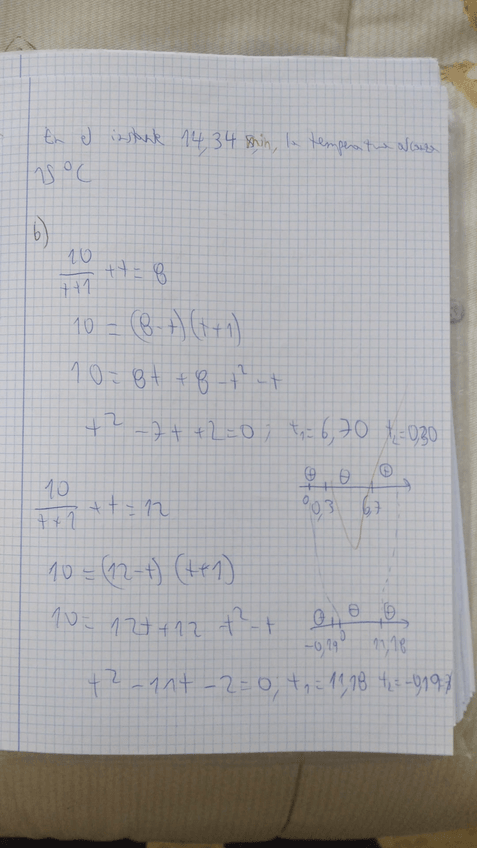 En el instante 14,34 min, la temperatura alcanza
15 °C
b)
10/(t+1) + t = 8
10 = (8-t)(t+1)
10 = 8t + 8 - t² - t
t² - 7t + 2 = 0; t₁ = 6,70 t₂ = 0,30
⊕ ⊖ ⊕
0 0,3 6,7
10/(t+1) + t = 12
10 = (12-t) (t+1)
10 = 12t + 12 t² - t
⊕ ⊖ ⊕
-0,19 0 11,18
t² - 11t - 2 = 0, t₁ = 11,18 t₂ = -0,197